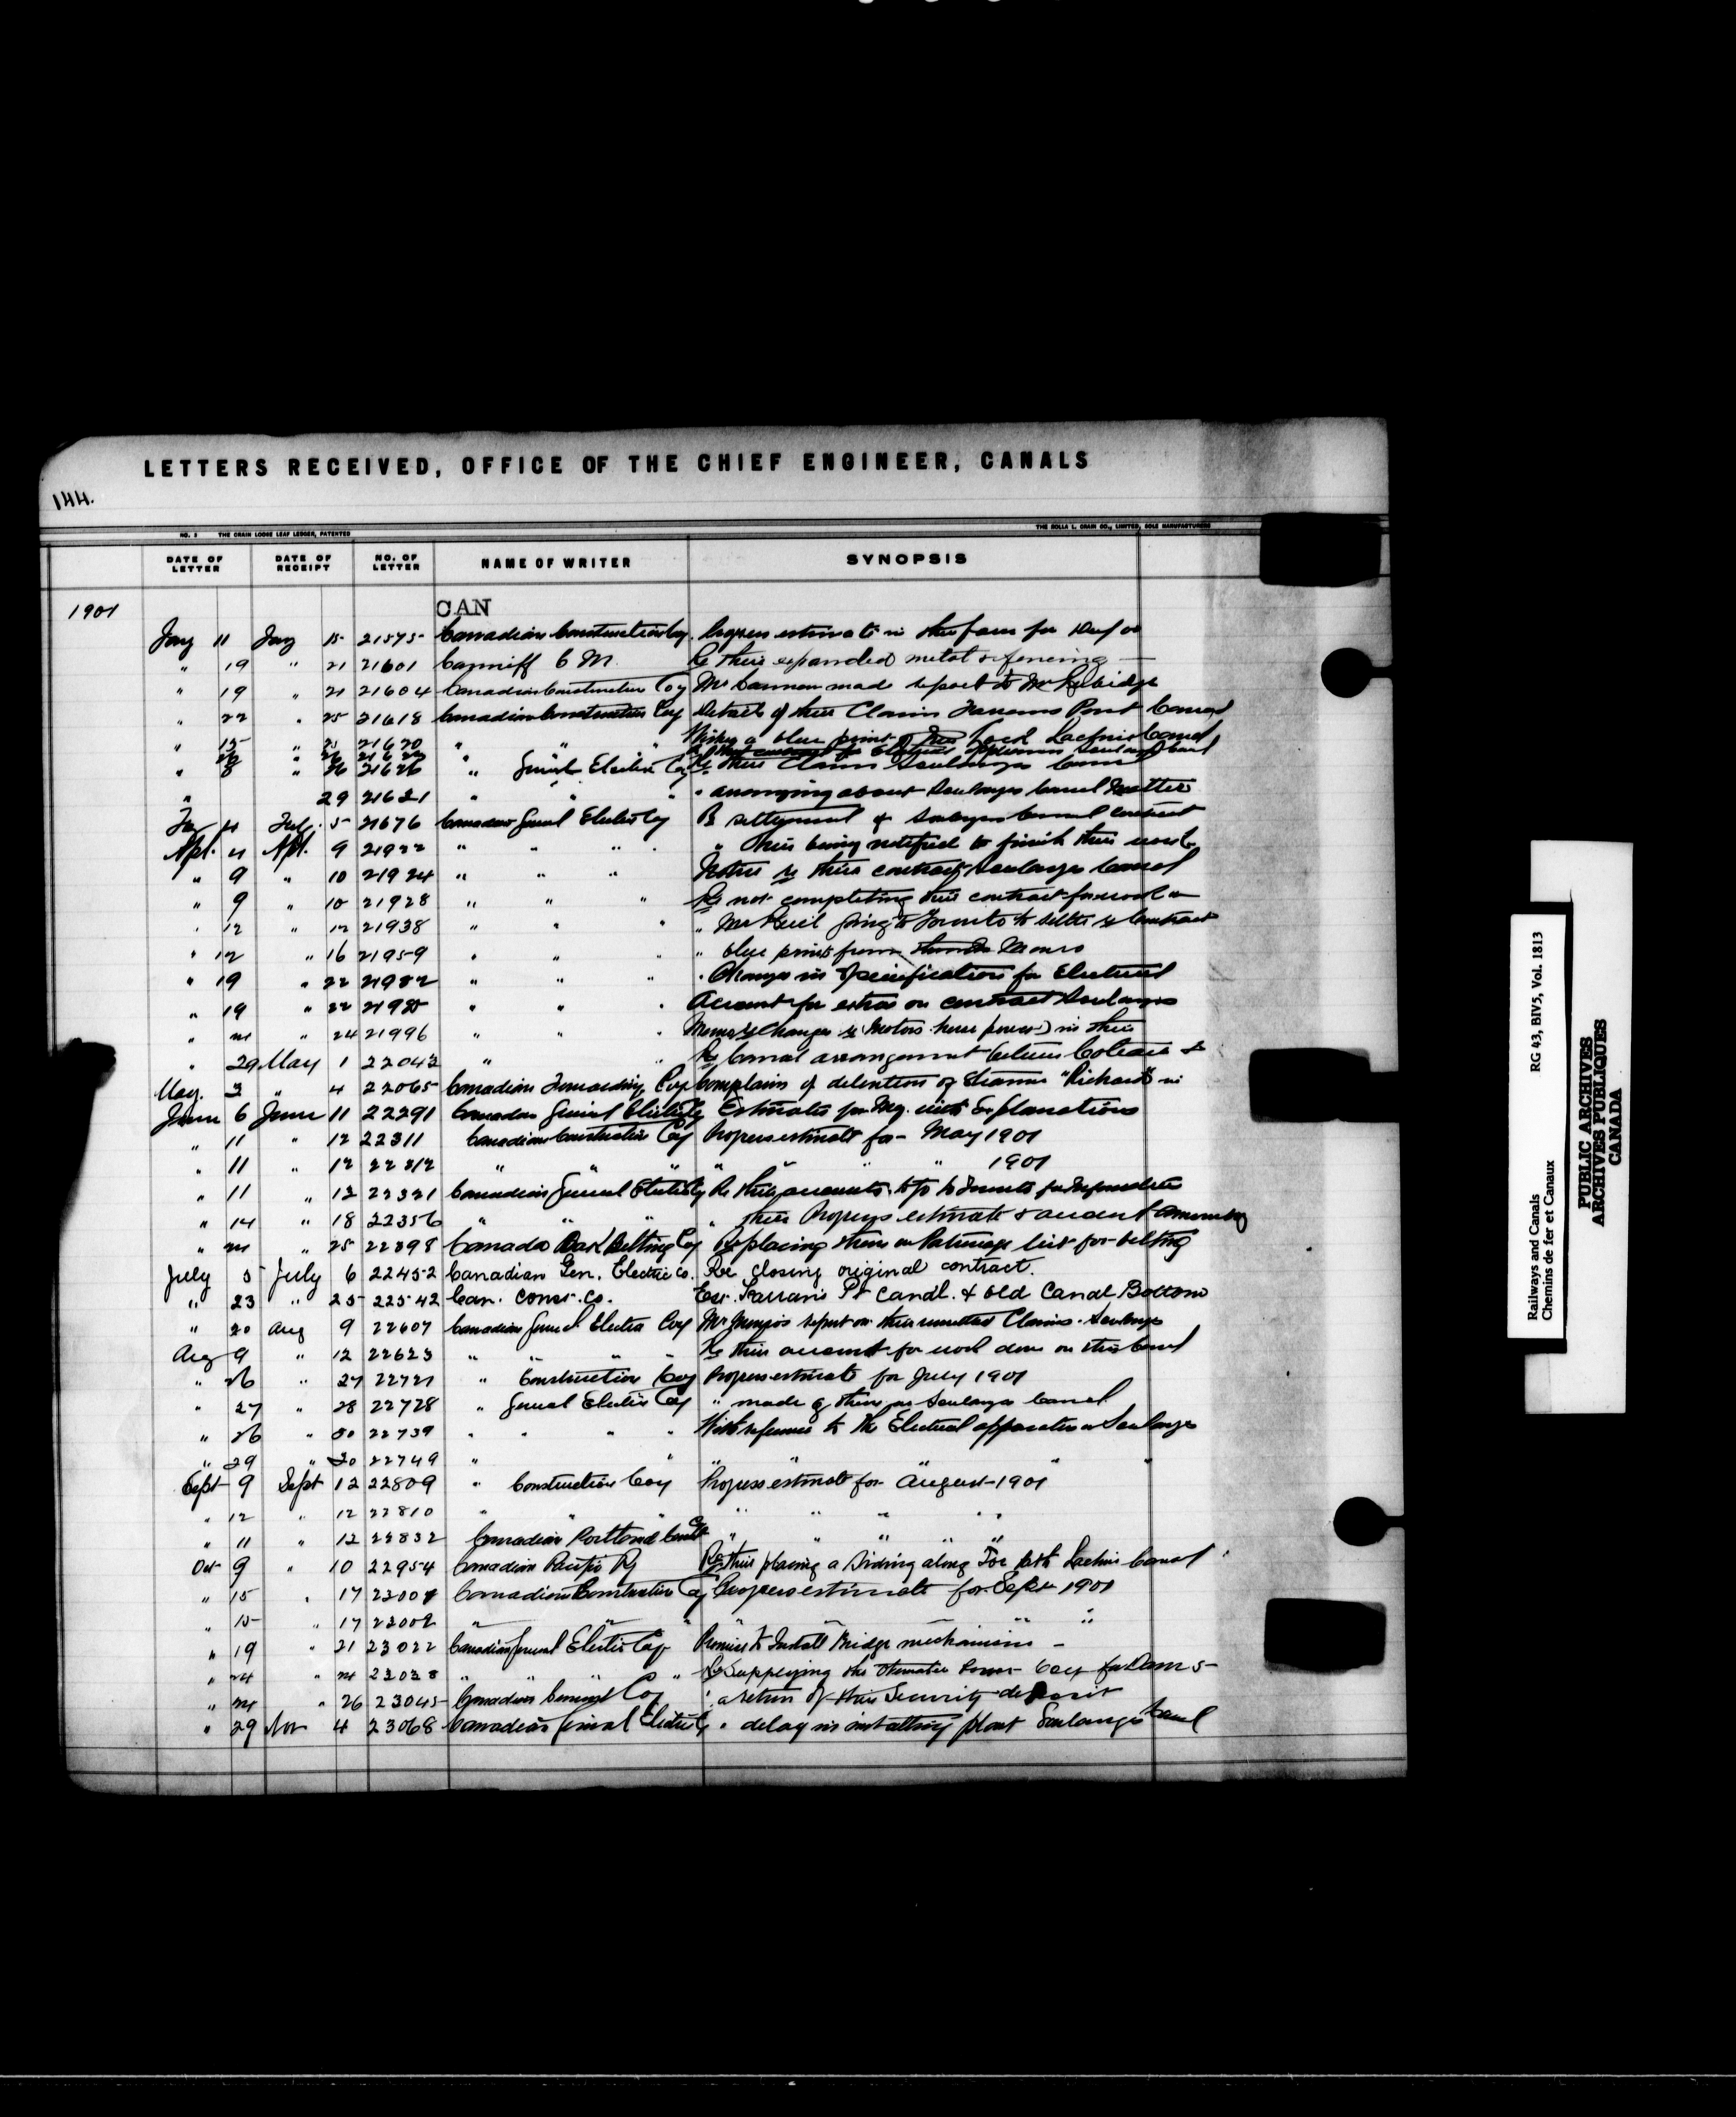 LETTERS RECEIVED, OFFICE OF THE CHIEF ENGINEER, CANALS
144.
NO. 2 THE CRAIN LOOSE LEAF LEDGER, PATENTED THE ROLLA L. CRAIN CO., LIMITED, SOLE MANUFACTURERS
DATE OF LETTER DATE OF RECEIPT NO. OF LETTER NAME OF WRITER SYNOPSIS
1901 CAN
Jany 11 Jany 15 21575 Canadian Construction Coy. Progress estimate in their favor for
" 19 " 21 21601 Canniff C M. Re their expanded metal & fencing
" 19 " 21 21604 Canadian Construction Coy Mr Cannon made report to Mr Rubidge
" 22 " 25 21618 Canadian Construction Coy Details of their Claim Farrans Point Canal
" 15 " 25 21620 " " " Wishes a blue print of Lock Lachine Canal
" 8 " 26 21626 " General Electric Coy Re their Claim Soulanges Canal
" 29 21631 " " " " arranging about Soulanges Canal Matter
4 Feby. 5 21676 Canadian General Electric Coy Re settlement of Soulanges Canal contract
Apl. 4 Apl. 9 21922 " " " " " their being notified to finish their work
" 9 " 10 21924 " " " Notice re their contract Soulanges Canal
" 9 " 10 21928 " " " Re not completing their contract for work
" 12 " 12 21938 " " " " Mr going to Toronto to settle re Contract
" 12 " 16 21959 " " " " blue prints from Munro
" 19 " 22 21982 " " " " Changes in Specification for Electrical
" 19 " 22 " " " Account for extras on contract Soulanges
" " 24 21996 " " " Memo re Changes re Motors horse power in their
" 29 May 1 22042 " " Re Canal arrangement between Coteau &
May. 3 " 4 22065 Canadian Forwarding Coy Complains of detention of Steamer "Richard" in
June 6 June 11 22291 Canadian General Electric Coy Estimates for May. with Explanations
" 11 " 12 22311 Canadian Construction Coy Progress estimate for May 1901
" 11 " 12 22312 " " " " " " " 1901
" 11 " 12 22321 Canadian General Electric Coy Re their accounts. to go to Toronto for
" 14 " 18 22356 " " " " their Progress estimate & account
" " 25 22398 Canada Oak Belting Coy Re placing them on Patronage list for belting
July 5 July 6 22452 Canadian Gen. Electric Co. Re closing original contract.
" 23 " 25 22542 Can. Const. Co. Est. Farrans Pt Canal. & Old Canal Bottom
" 20 Aug 9 22607 Canadian General Electric Coy Mr Munro's report on their Claims. Soulanges
Aug 9 " 12 22623 " " " " Re their account for work done on this Canal
" 26 " 27 22721 " Construction Coy Progress estimate for July 1901
" 27 " 28 22728 " General Electric Coy " made of them on Soulanges Canal
" 26 " 30 22739 " " " " With reference to the Electrical apparatus Soulanges
" 29 " 30 22749 " " " " " "
Sept 9 Sept 12 22809 " Construction Coy Progress estimate for August 1901
" 12 " 12 22810 " " " " " " " "
" 11 " 12 22832 Canadian Portland Cement Co " " " " "
Oct 9 " 10 22954 Canadian Pacific Ry Re their placing a Siding along Tow path Lachine Canal
" 15 " 17 23007 Canadian Construction Coy Progress estimate for Sept 1901
" 15 " 17 23009 " " " " " " "
" 19 " 21 23022 Canadian General Electric Coy Promise to Install Bridge mechanism
" 24 " 24 23038 " " " " Re Supplying the Coy for Dam 5
" 24 " 26 23045 Canadian Coy " return of their Security deposit
" 29 Nov 4 23068 Canadian General Electric Coy " delay in installing plant Soulanges Canal
Railways and Canals
Chemins de fer et Canaux
RG 43, BIV5, Vol. 1813
PUBLIC ARCHIVES
ARCHIVES PUBLIQUES
CANADA